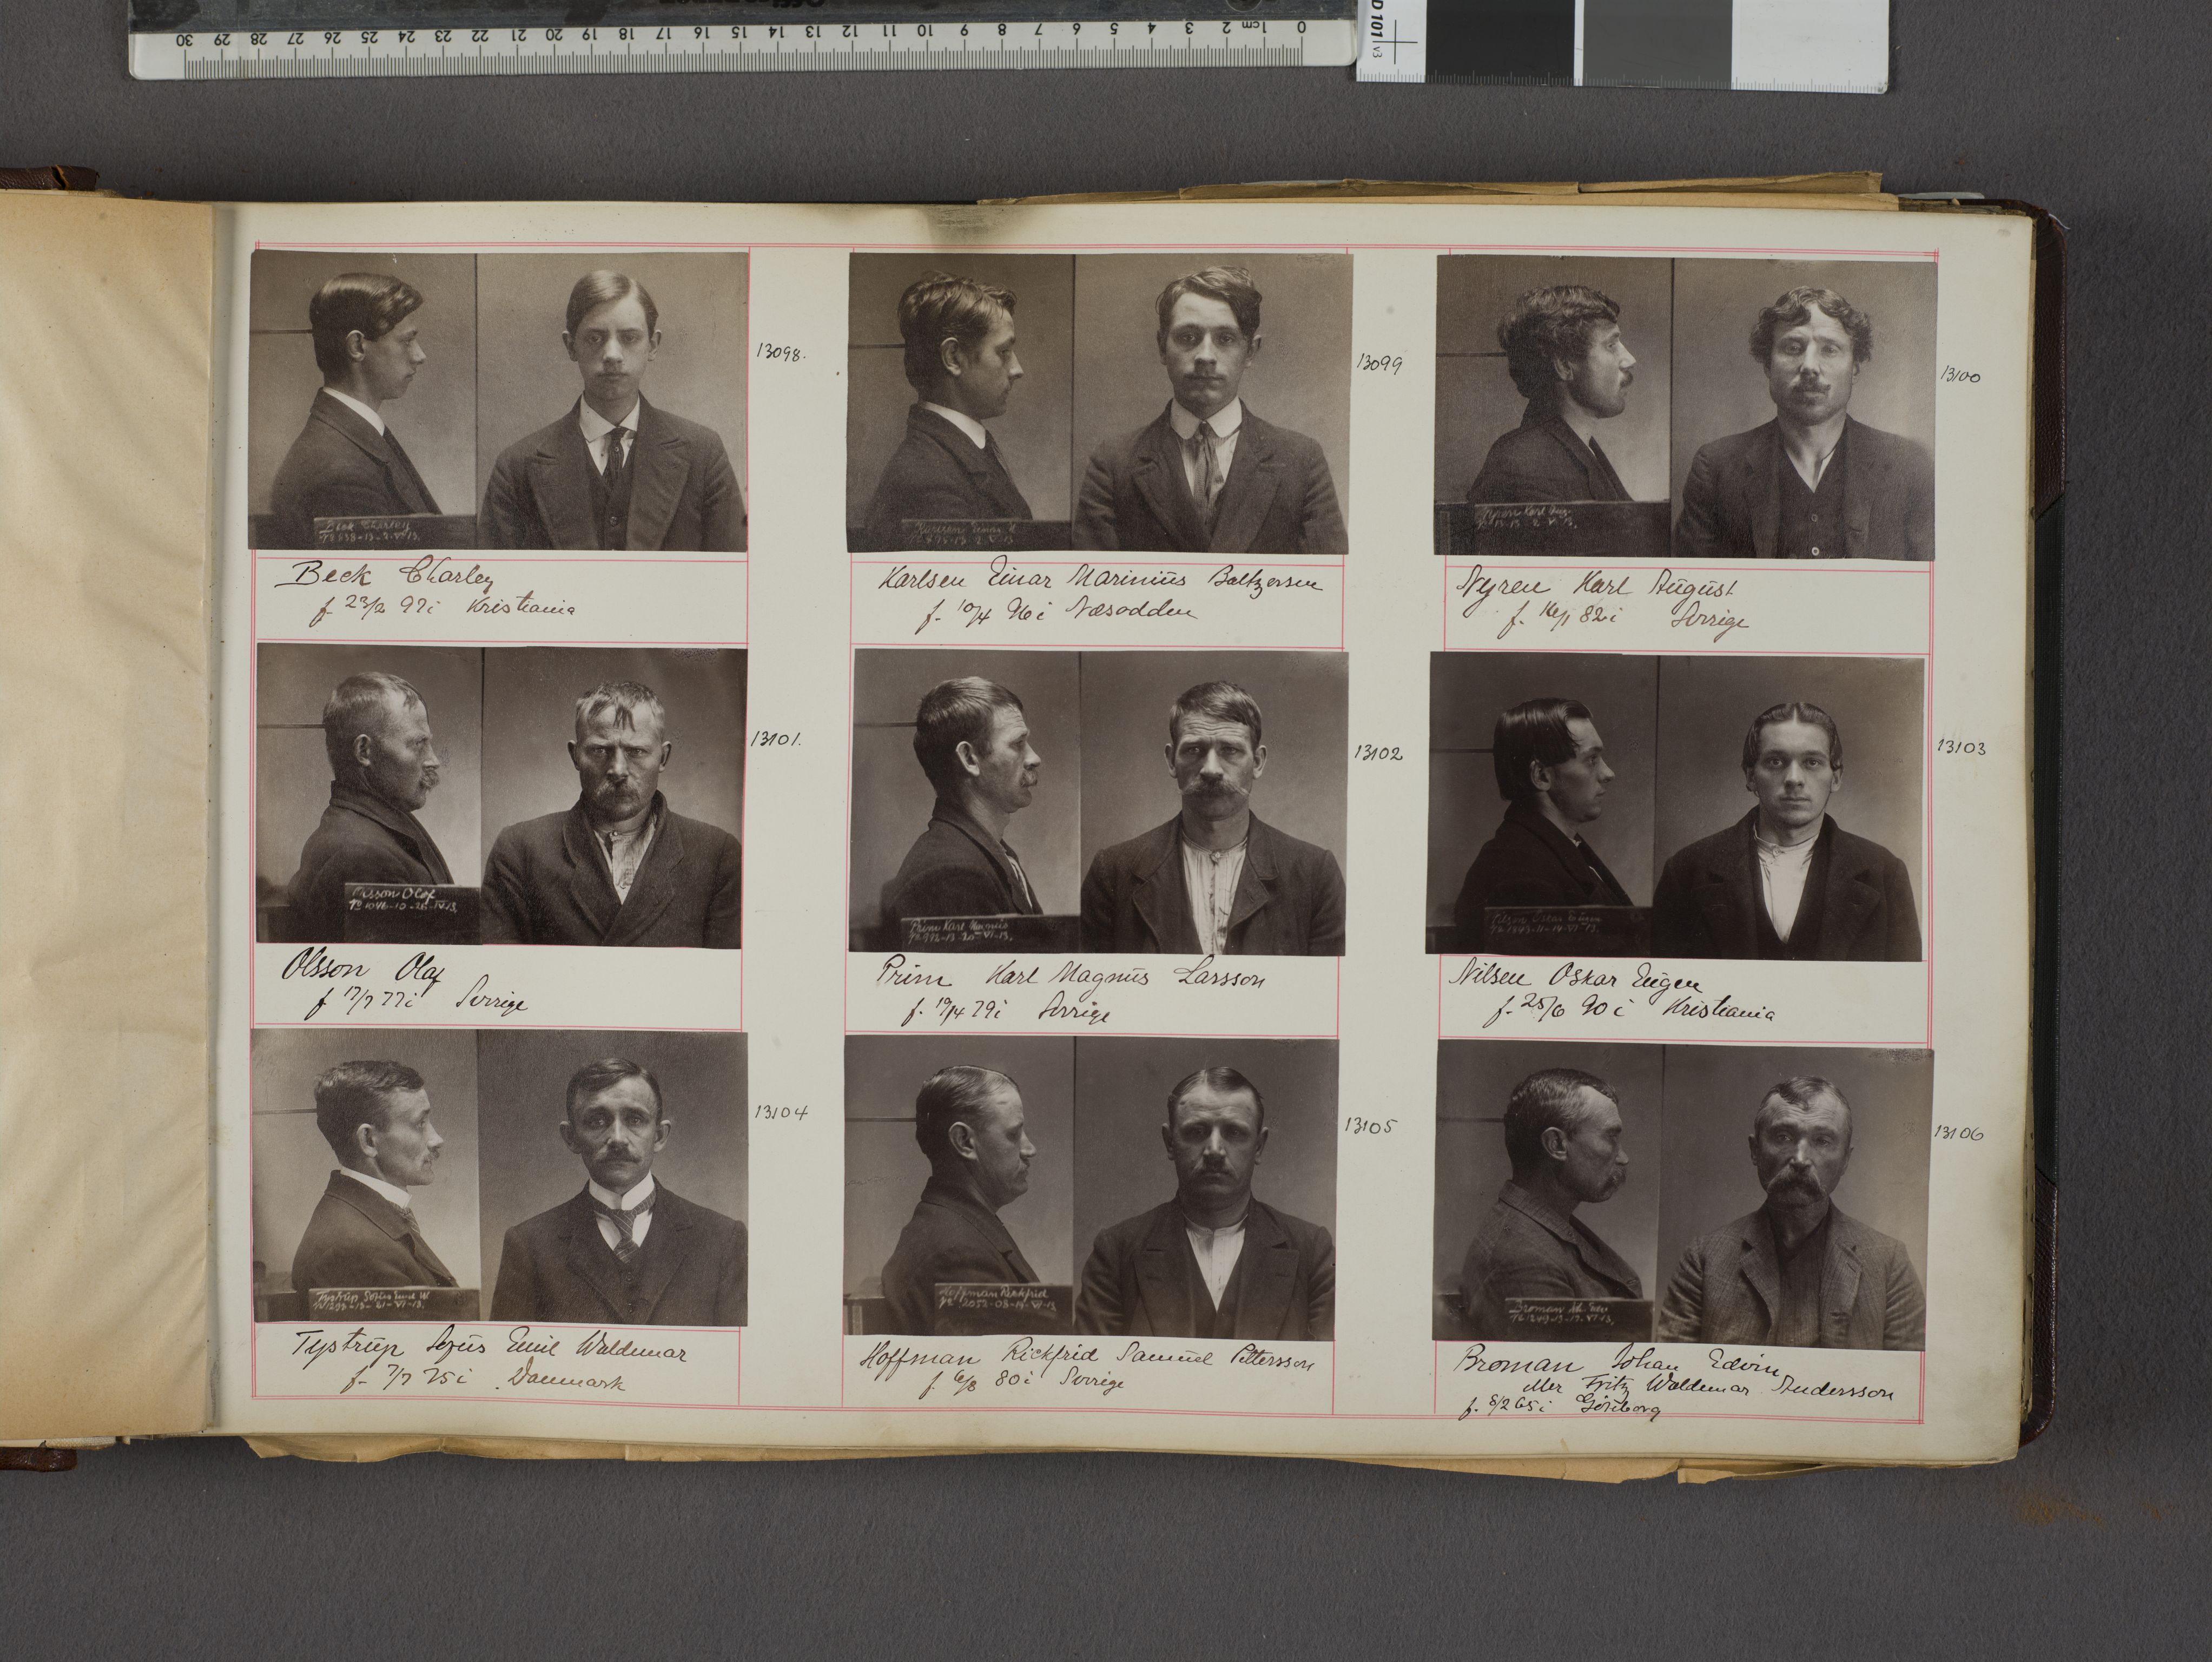 30 29 28 27 26 25 24 23 22 21 20 19 18 17 16 15 14 13 12 11 10 9 8 7 6 5 4 3 2 1cm 0
D 101 v3
13098.
Beck Charley
f. 23/2 97 i Kristiania
13099
Karlsen Einar Marinius Baltzersen
f. 10/4 96 i Næsodden
13100
Nyren Karl August
f. 16/1 82 i Sverige
Olsson Olof
13101.
Olsson Olaf
f 17/7 77 i Sverige
Prim Karl Magnus
13102
Prim Karl Magnus Larsson
f. 19/4 79 i Sverige
13103
Nilsen Oskar Eugen
f. 25/6 90 i Kristiania
Tystrup Sofus Emil W
13104
Tystrup Sofus Emil Waldemar
f. 7/7 75 i Danmark
Hoffman Rickfrid
13105
Hoffman Rickfrid Samuel Pettersson
f. 6/8 80 i Sverige
Broman
13106
Broman Johan Edvin
eller Fritz Waldemar Andersson
f. 8/2 65 i Göteborg